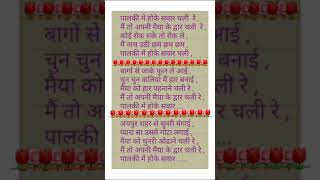 पालकी में होके सवार चली रे ,
मैं तो अपनी मैया के द्वार चली रे ,
कोई रोक सके तो रोक ले ,
मैं नाच उठी छम छम छम ,
पालकी में होके सवार चली रे
बागों से जाके फूल ले आई ,
चुन चुन कलियां मैं हार बनाई ,
मैया को हार पहनाने चली रे ,
मैं तो अपनी मैया के द्वार चली रे ,
पालकी में होके सवार......
जयपुर शहर से चुनरी मंगाई ,
प्यारा सा उसमे गोटा लगाई ,
मैया को चुनरी ओढाने चली रे ,
मैं तो अपनी मैया के द्वार चली रे ,
पालकी में होके सवार......